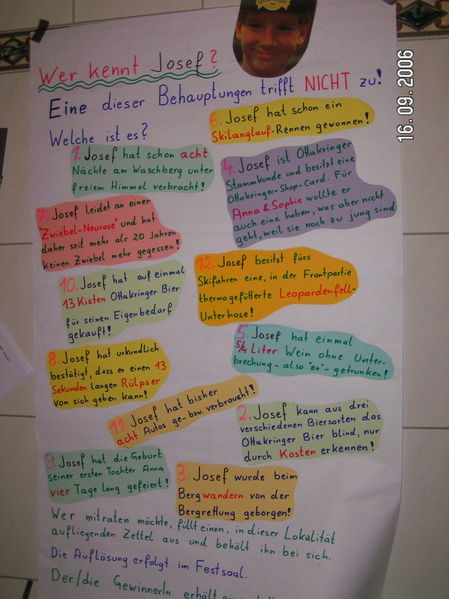 Wer kennt Josef?
Eine dieser Behauptungen trifft NICHT zu!
Welche ist es?
6. Josef hat schon ein
Skilanglauf-Rennen gewonnen!
1. Josef hat schon acht
Nächte am Waschberg unter
freiem Himmel verbracht!
4. Josef ist Ottakringer
Stammkunde und besitzt eine
Ottakringer-Shop-Card. Für
Anna & Sophie wollte er
auch eine haben, was aber nicht
geht, weil sie noch zu jung sind
7. Josef leidet an einer
"Zwiebel-Neurose" und hat
daher seit mehr als 20 Jahren
keinen Zwiebel mehr gegessen!
12. Josef besitzt fürs
Skifahren eine, in der Frontpartie
thermogefütterte Leopardenfell-
Unterhose!
10. Josef hat auf einmal
13 Kisten Ottakringer Bier
für seinen Eigenbedarf
gekauft!
5. Josef hat einmal
5/4 Liter Wein ohne Unter-
brechung - also "ex" - getrunken!
8. Josef hat urkundlich
bestätigt, dass er einen 13
Sekunden langen Rülpser
von sich geben kann!
11. Josef hat bisher
acht Autos ge- bzw. verbraucht!
2. Josef kann aus drei
verschiedenen Biersorten das
Ottakringer Bier blind, nur
durch Kosten erkennen!
9. Josef hat die Geburt
seiner ersten Tochter Anna
vier Tage lang gefeiert!
3. Josef wurde beim
Bergwandern von der
Bergrettung geborgen!
Wer mitraten möchte, füllt einen, in dieser Lokalität
aufliegenden Zettel aus und behält ihn bei sich.
Die Auflösung erfolgt im Festsaal.
Der/die GewinnerIn erhält
16.09.2006